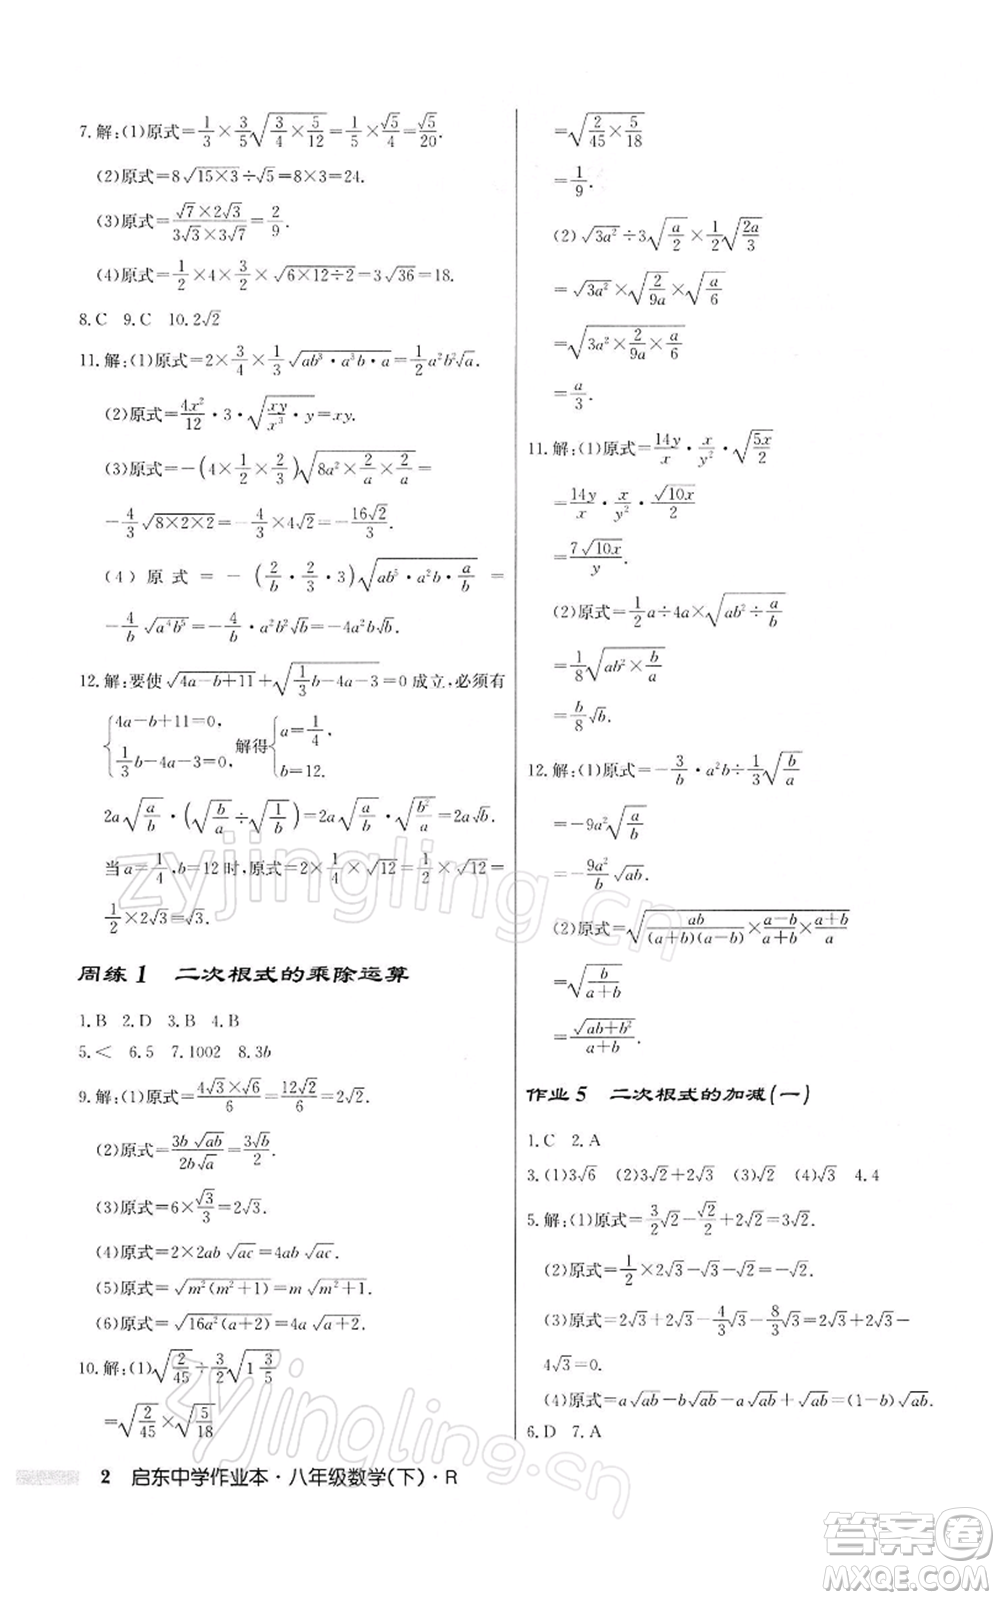 7.解:(1)原式=1/3×3/5√(3/4×5/12)=1/5×√5/4=√5/20.
(2)原式=8√(15×3)÷√5=8×3=24.
(3)原式=(√7×2√3)/(3√3×3√7)=2/9.
(4)原式=1/2×4×3/2×√(6×12÷2)=3√36=18.
8.C 9.C 10.2√2
11.解:(1)原式=2×3/4×1/3√(ab³·a³b·a)=1/2a²b²√a.
(2)原式=4x²/12·3·√(xy/x³·y)=xy.
(3)原式=-(4×1/2×2/3)√(8a²×2/a×2/a)=
-4/3√(8×2×2)=-4/3×4√2=-16√2/3.
(4)原式=-(2/b·2/3·3)√(ab⁵·a²b·a/b)=
-4/b√(a⁴b⁵)=-4/b·a²b²√b=-4a²b√b.
12.解:要使√(4a-b+11)+√(1/3b-4a-3)=0成立,必须有
{4a-b+11=0, 1/3b-4a-3=0, 解得{a=1/4, b=12.
2a√(a/b)·(√(b/a)÷√(1/b))=2a√(a/b)·√(b²/a)=2a√b.
当a=1/4,b=12时,原式=2×1/4×√12=1/2×√12=
1/2×2√3=√3.
周练1 二次根式的乘除运算
1.B 2.D 3.B 4.B
5.< 6.5 7.1002 8.3b
9.解:(1)原式=(4√3×√6)/6=12√2/6=2√2.
(2)原式=3b√(ab)/(2b√a)=3√b/2.
(3)原式=6×√3/3=2√3.
(4)原式=2×2ab√(ac)=4ab√(ac).
(5)原式=√(m²(m²+1))=m√(m²+1).
(6)原式=√(16a²(a+2))=4a√(a+2).
10.解:(1)√(2/45)÷3/2√(1 3/5)
=√(2/45)×√(5/18)
=√(2/45×5/18)
=1/9.
(2)√(3a²)÷3√(a/2)×1/2√(2a/3)
=√(3a²)×√(2/9a)×√(a/6)
=√(3a²×2/9a×a/6)
=a/3.
11.解:(1)原式=14y/x·x/y²·√(5x/2)
=14y/x·x/y²·√(10x)/2
=7√(10x)/y.
(2)原式=1/2a÷4a×√(ab²÷a/b)
=1/8√(ab²×b/a)
=b/8√b.
12.解:(1)原式=-3/b·a²b÷1/3√(b/a)
=-9a²√(a/b)
=-9a²/b√(ab).
(2)原式=√(ab/((a+b)(a-b))×(a-b)/(a+b)×(a+b)/a)
=√(b/(a+b))
=√(ab+b²)/(a+b).
作业5 二次根式的加减(一)
1.C 2.A
3.(1)3√6 (2)3√2+2√3 (3)√2 (4)√3 4.4
5.解:(1)原式=3/2√2-√2/2+2√2=3√2.
(2)原式=1/2×2√3-√3-√3=-√3.
(3)原式=2√3-4/3√3-8/3√3+2√3=
4√3=0.
(4)原式=a√(ab)-b√(ab)-a√(ab)+√(ab)=(1-b)√(ab).
6.D 7.A
2 启东中学作业本·八年级数学(下)·R
zyjingling.cn
zyjingling.cn
答案圈
MXQE.COM